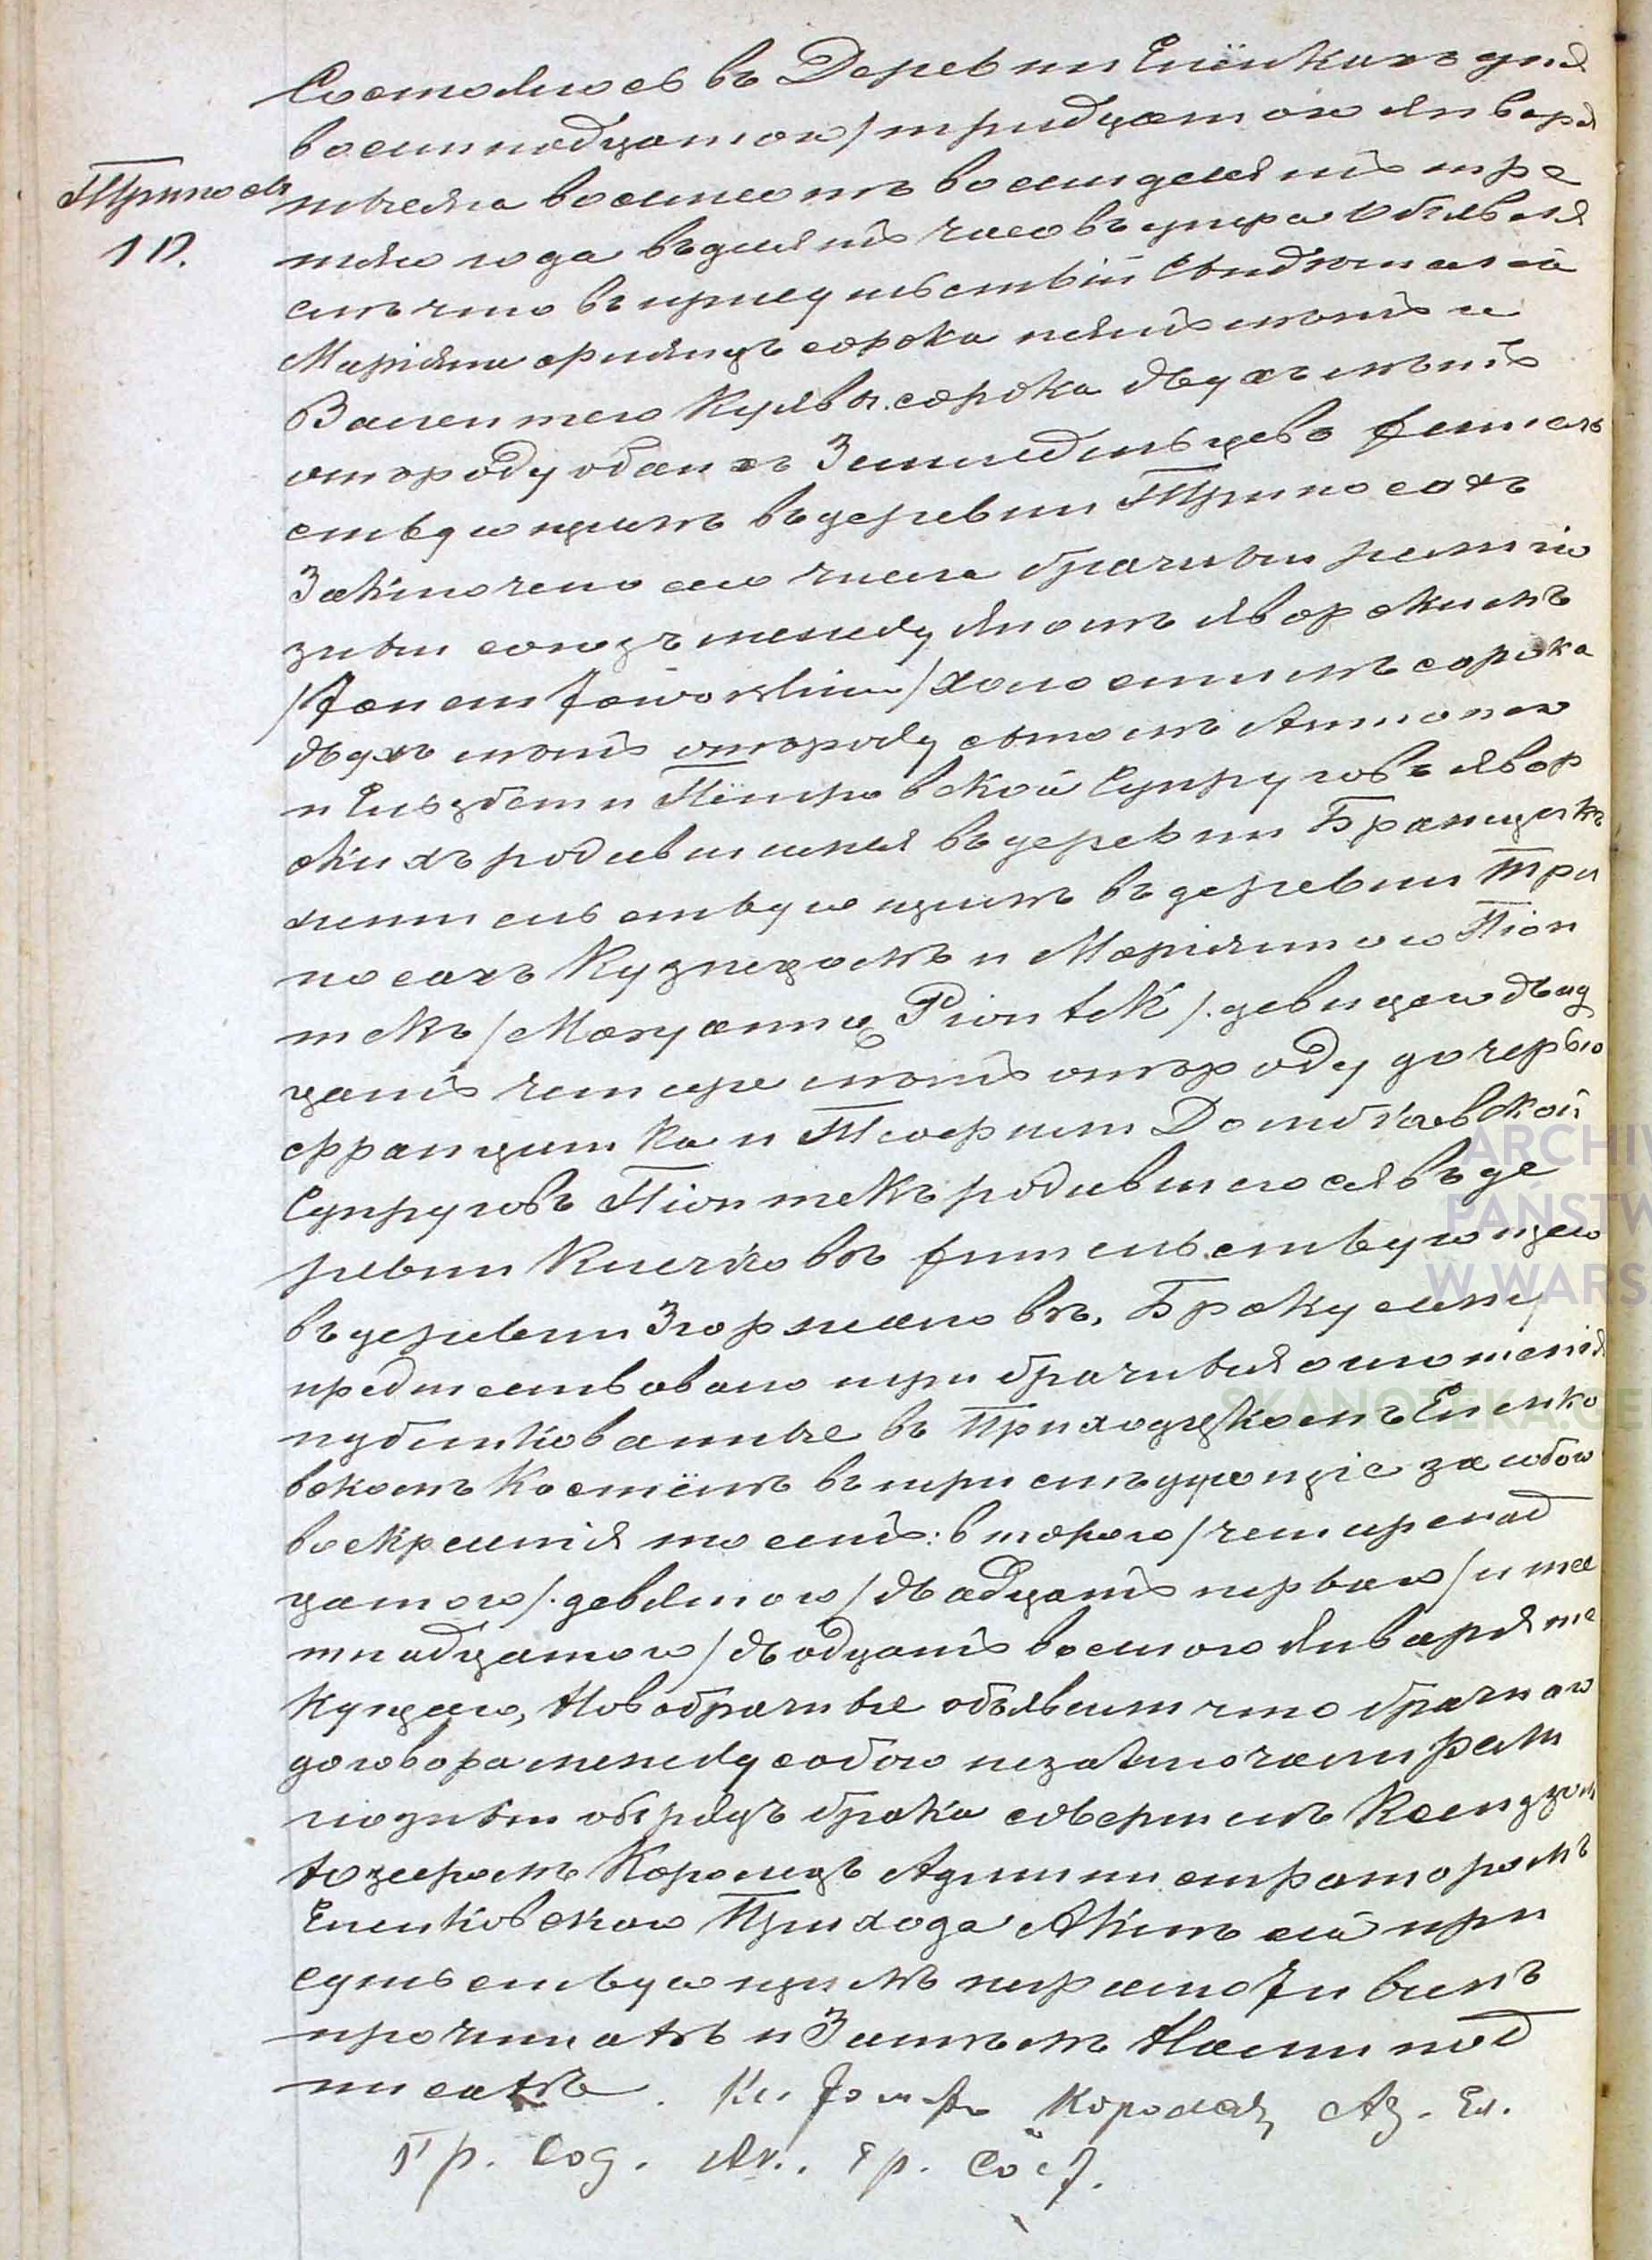 Трипосы
10.
Состоялось въ Деревни Еленкахъ дня
восемнадцатого/тридцатого января
тысяча восемсотъ восемдесятъ тре
тяго года въ десять часовъ утра Объявля
емъ что въ присудствіи Свидѣтелей
Маріяна сорока пять лѣтъ и
Валентего Кулвы сорока двухъ лѣтъ
отъ роду обаихъ Земледѣльцевъ жетель
ствующимъ въ деревни Трипосахъ
Заключено сего числа брачный религіо
зный союзъ между Яномъ Яворскимъ
/Janem Jaworskim/ холостымъ сорока
двухъ лѣтъ отъ роду сыномъ Антонего
и Ельзбеты Піотровской Супруговъ Явор
скихъ родившимся въ деревни Бранщикъ
жительствующимъ въ деревни Три
посахъ Кузнецомъ и Маріянною Піон
текъ /Maryanną Piontek/. девицею двад
цать четыре лѣтъ отъ роду дочерью
Францишка и Теофили Домбковской
Супруговъ Піонтекъ родившеюся въ де
ревни Клечковъ жительствующею
въ деревни Згоржалово. Браку сему
предшествовало три брачныя оглошенія
публикованные въ Приходзкомъ Еленко
вскомъ Костёлѣ въ три слѣдующіе за собою
воскресенія то есть: второго/четырнад
цатого/. девятого/двадцать первого/ и шес
тнадцатого/двадцать восмого Января те
кущаго, Новобрачные объявили что брачного
договора между собою незаключали рели
гіозный обрядъ брака совершилъ Ксендзомъ
Юзефомъ Администраторомъ
Еленковского Прихода Актъ сей при
сутьствующимъ неграмотнымъ
прочитанъ и Затѣмъ Нами под
писанъ. Кс. Администр. Ел.
Пр. Сод. Ак. Гр. Сост.